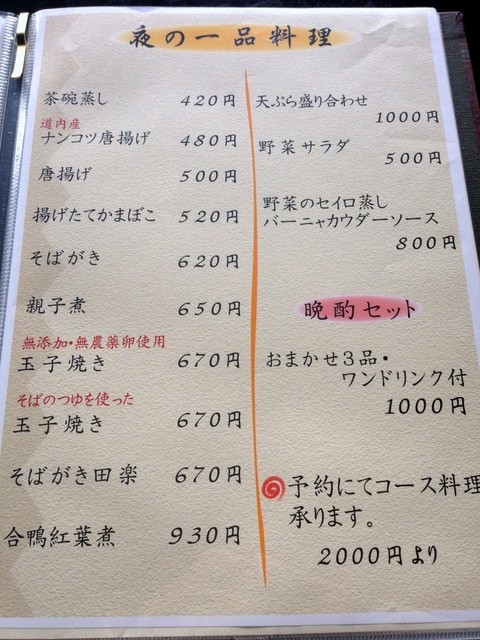 夜の一品料理
茶碗蒸し 420円
道内産
ナンコツ唐揚げ 480円
唐揚げ 500円
揚げたてかまぼこ 520円
そばがき 620円
親子煮 650円
無添加・無農薬卵使用
玉子焼き 670円
そばのつゆを使った
玉子焼き 670円
そばがき田楽 670円
合鴨紅葉煮 930円
天ぷら盛り合わせ
1000円
野菜サラダ
500円
野菜のセイロ蒸し
バーニャカウダーソース
800円
晩酌セット
おまかせ3品・
ワンドリンク付
1000円
予約にてコース料理
承ります。
2000円より